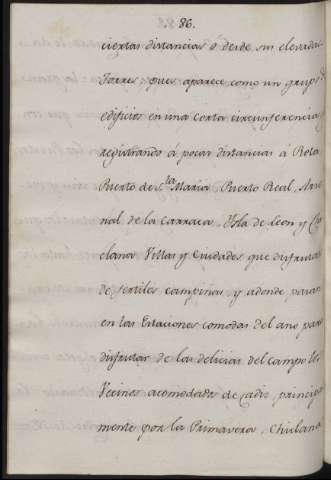 86.
ciertas distancias ó desde sus elevadas
Torres, pues aparece como un grupo de
edificios en una corta circunferencia
registrando á pocas distancias á Rota
Puerto de Sta. Maria, Puerto Real, Arse
nal de la Carraca, Ysla de Leon y Chi
clana Villas y Ciudades que disfrutan
de fertiles campiñas, y adonde pasan
en las Estaciones comodas del año para
disfrutar de las delicias del campo los
Vecinos acomodados de Cadiz, principal
mente por la Primavera. Chiclana